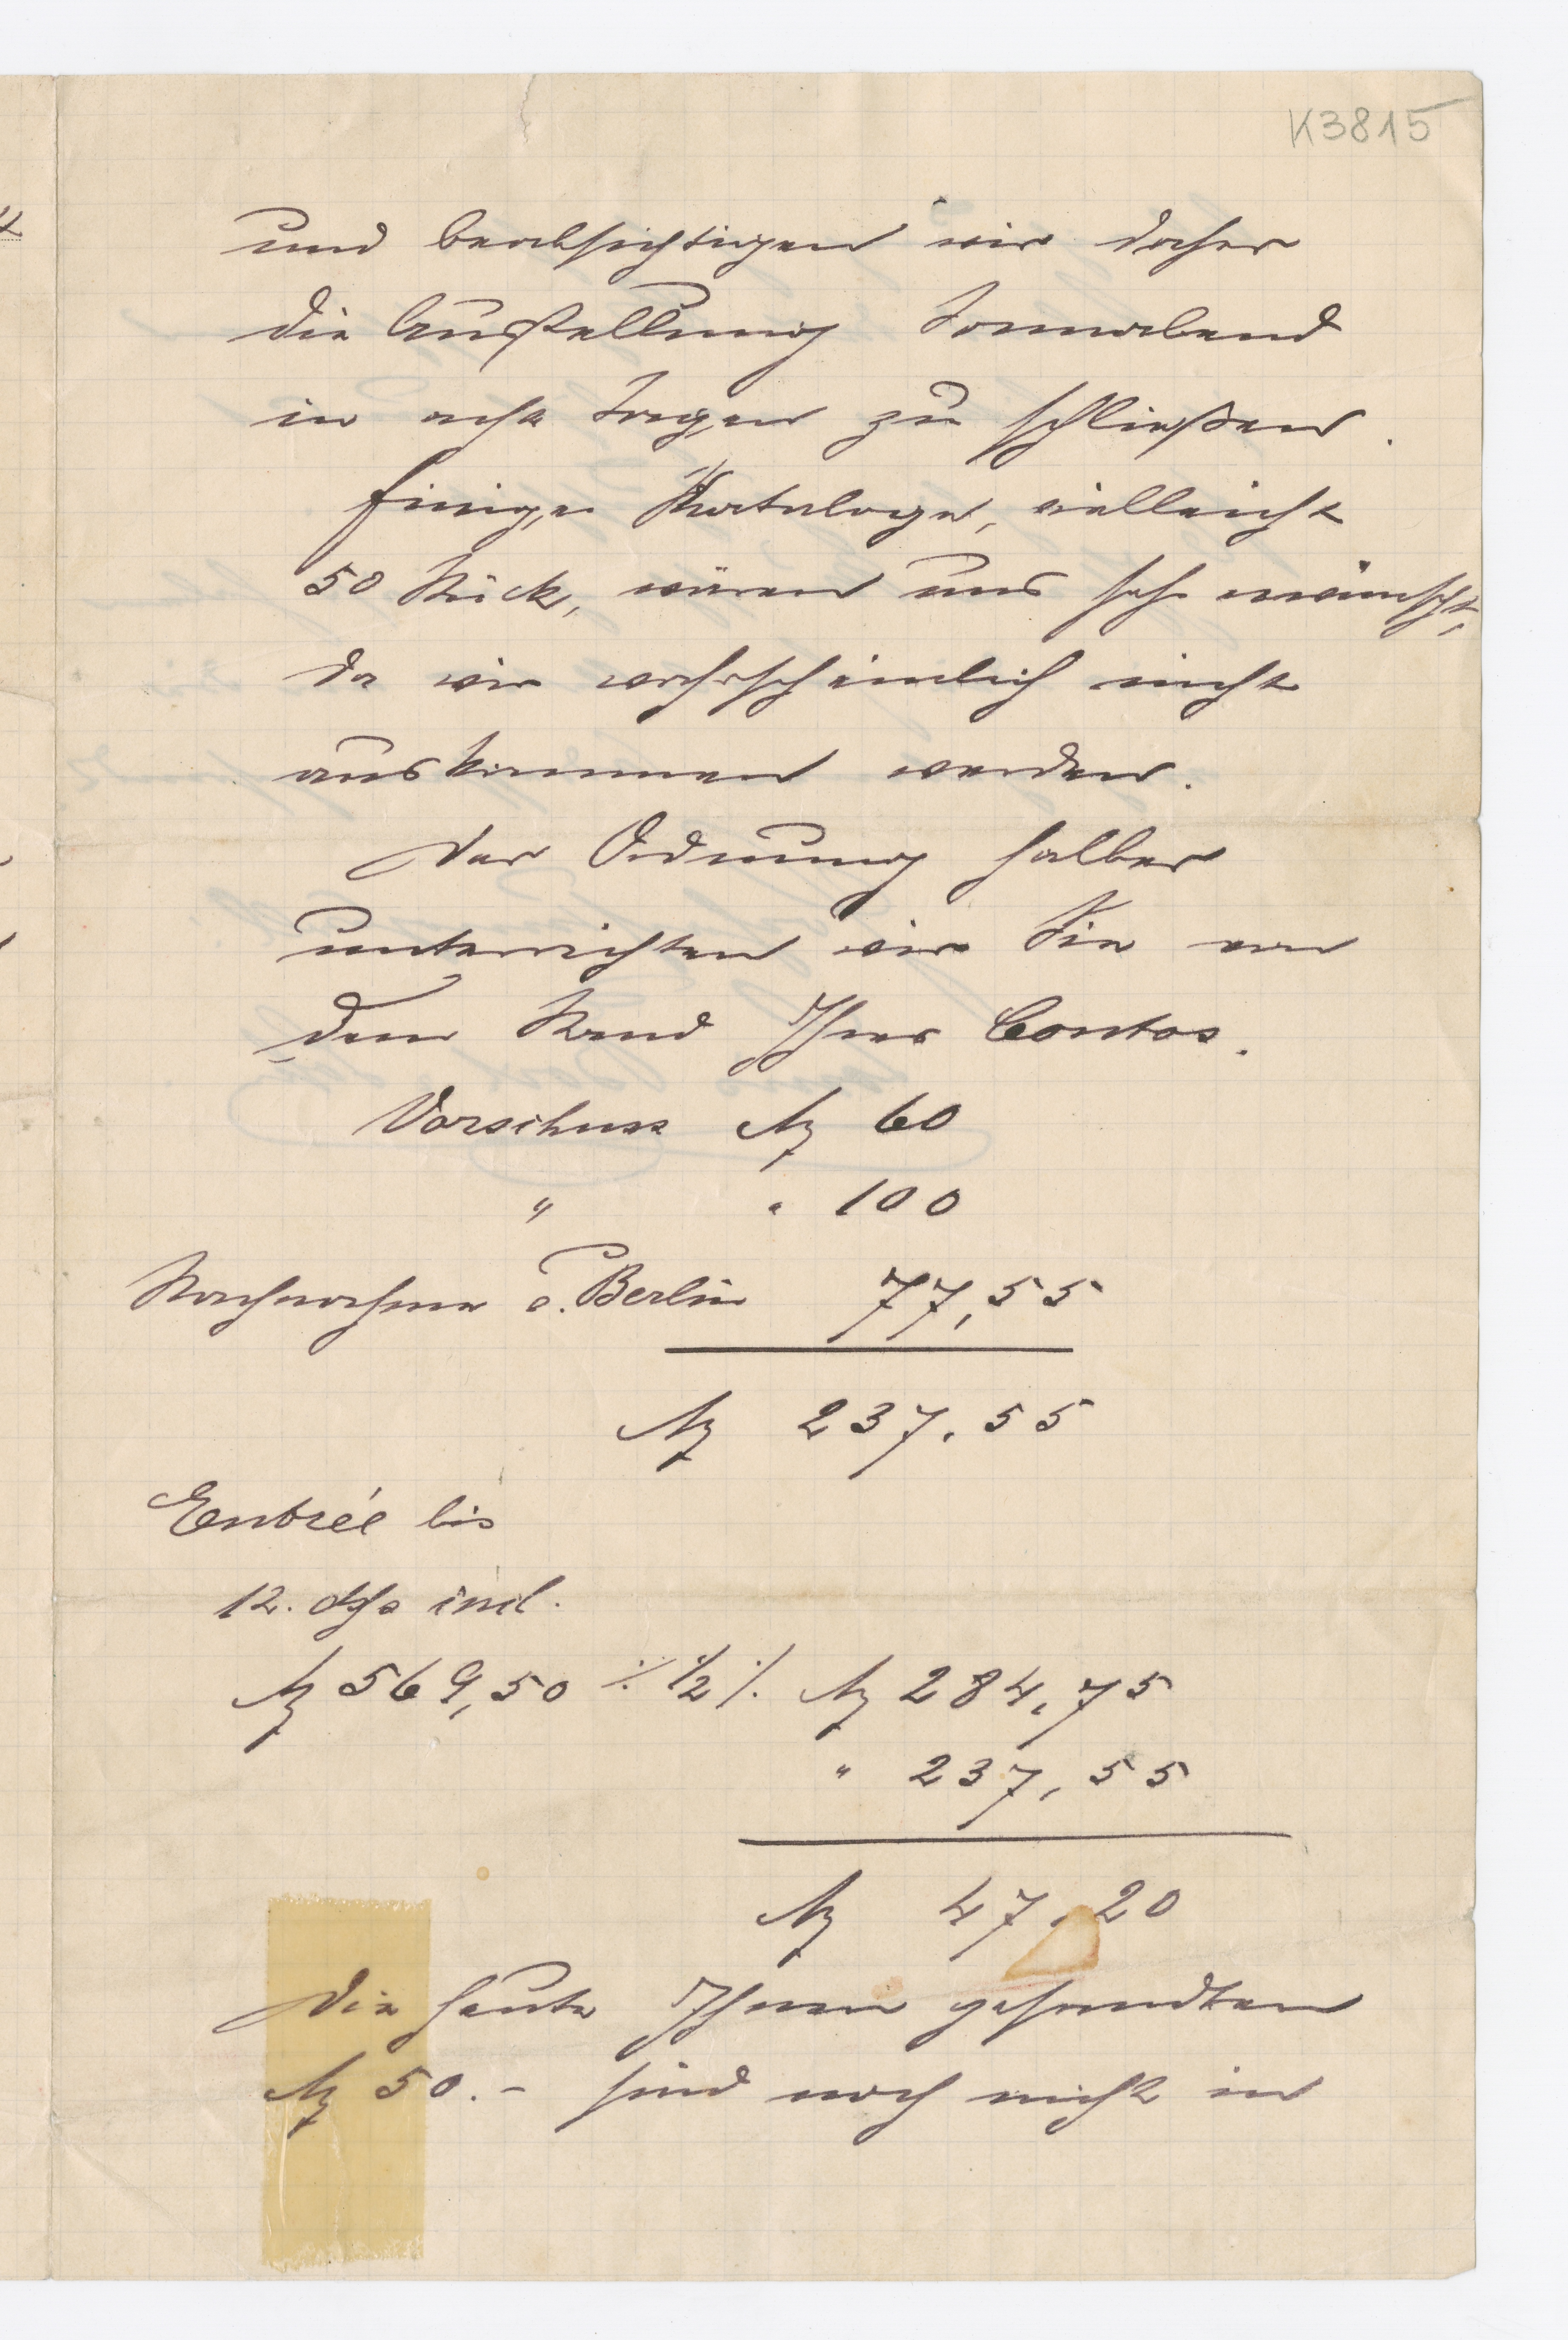 K3815
und beabsichtigen wir daher
die Ausstellung Sonnabend
in acht Tagen zu schließen.
Einige Kataloge, vielleicht
50 Stück, wären uns sehr erwünscht,
da wir wahrscheinlich nicht
auskommen werden.
Der Ordnung halber
unterrichten wir Sie von
dem Stand Ihres Contos.
Vorschuss M 60
" " 100
Nachnahme a. Berlin 77,55
M 237.55
Entrée bis
12. incl.
M 569,50 ./. 1/2 ./. M 284,75
" 237,55
M 47,20
Die heute Ihnen gesandten
M 50.- sind noch nicht in